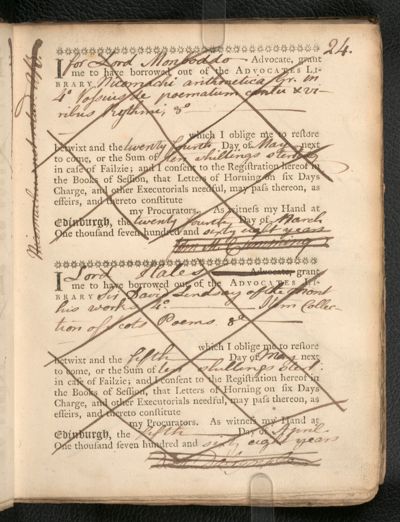 24.
I for Lord Monboddo Advocate, grant
me to have borrowed out of the ADVOCATES LI-
BRARY Nicomachi arithmetica Gr. in
4° Vossius de poematum cantu & vi-
ribus rythmi, 8°
which I oblige me to restore
betwixt and the twenty fourth Day of May next
to come, or the Sum of ten shillings sterling
in case of Failzie; and I consent to the Registration hereof in
the Books of Session, that Letters of Horning on six Days
Charge, and other Executorials needful, may pass thereon, as
effeirs, and thereto constitute
my Procurators. As witness my Hand at
Edinburgh, the twenty fourth Day of March
One thousand seven hundred and sixty eight years
I Lord Hales Advocate, grant
me to have borrowed out of the ADVOCATES LI-
BRARY Sir David Lindsay of the Mont
his works 4°. Item Collec-
tion of Scots Poems. 8°
which I oblige me to restore
betwixt and the fifth Day of May next
to come, or the Sum of ten shillings sterl:
in case of Failzie; and I consent to the Registration hereof in
the Books of Session, that Letters of Horning on six Days
Charge, and other Executorials needful, may pass thereon, as
effeirs, and thereto constitute
my Procurators. As witness my Hand at
Edinburgh, the fifth Day of April
One thousand seven hundred and sixty eight years